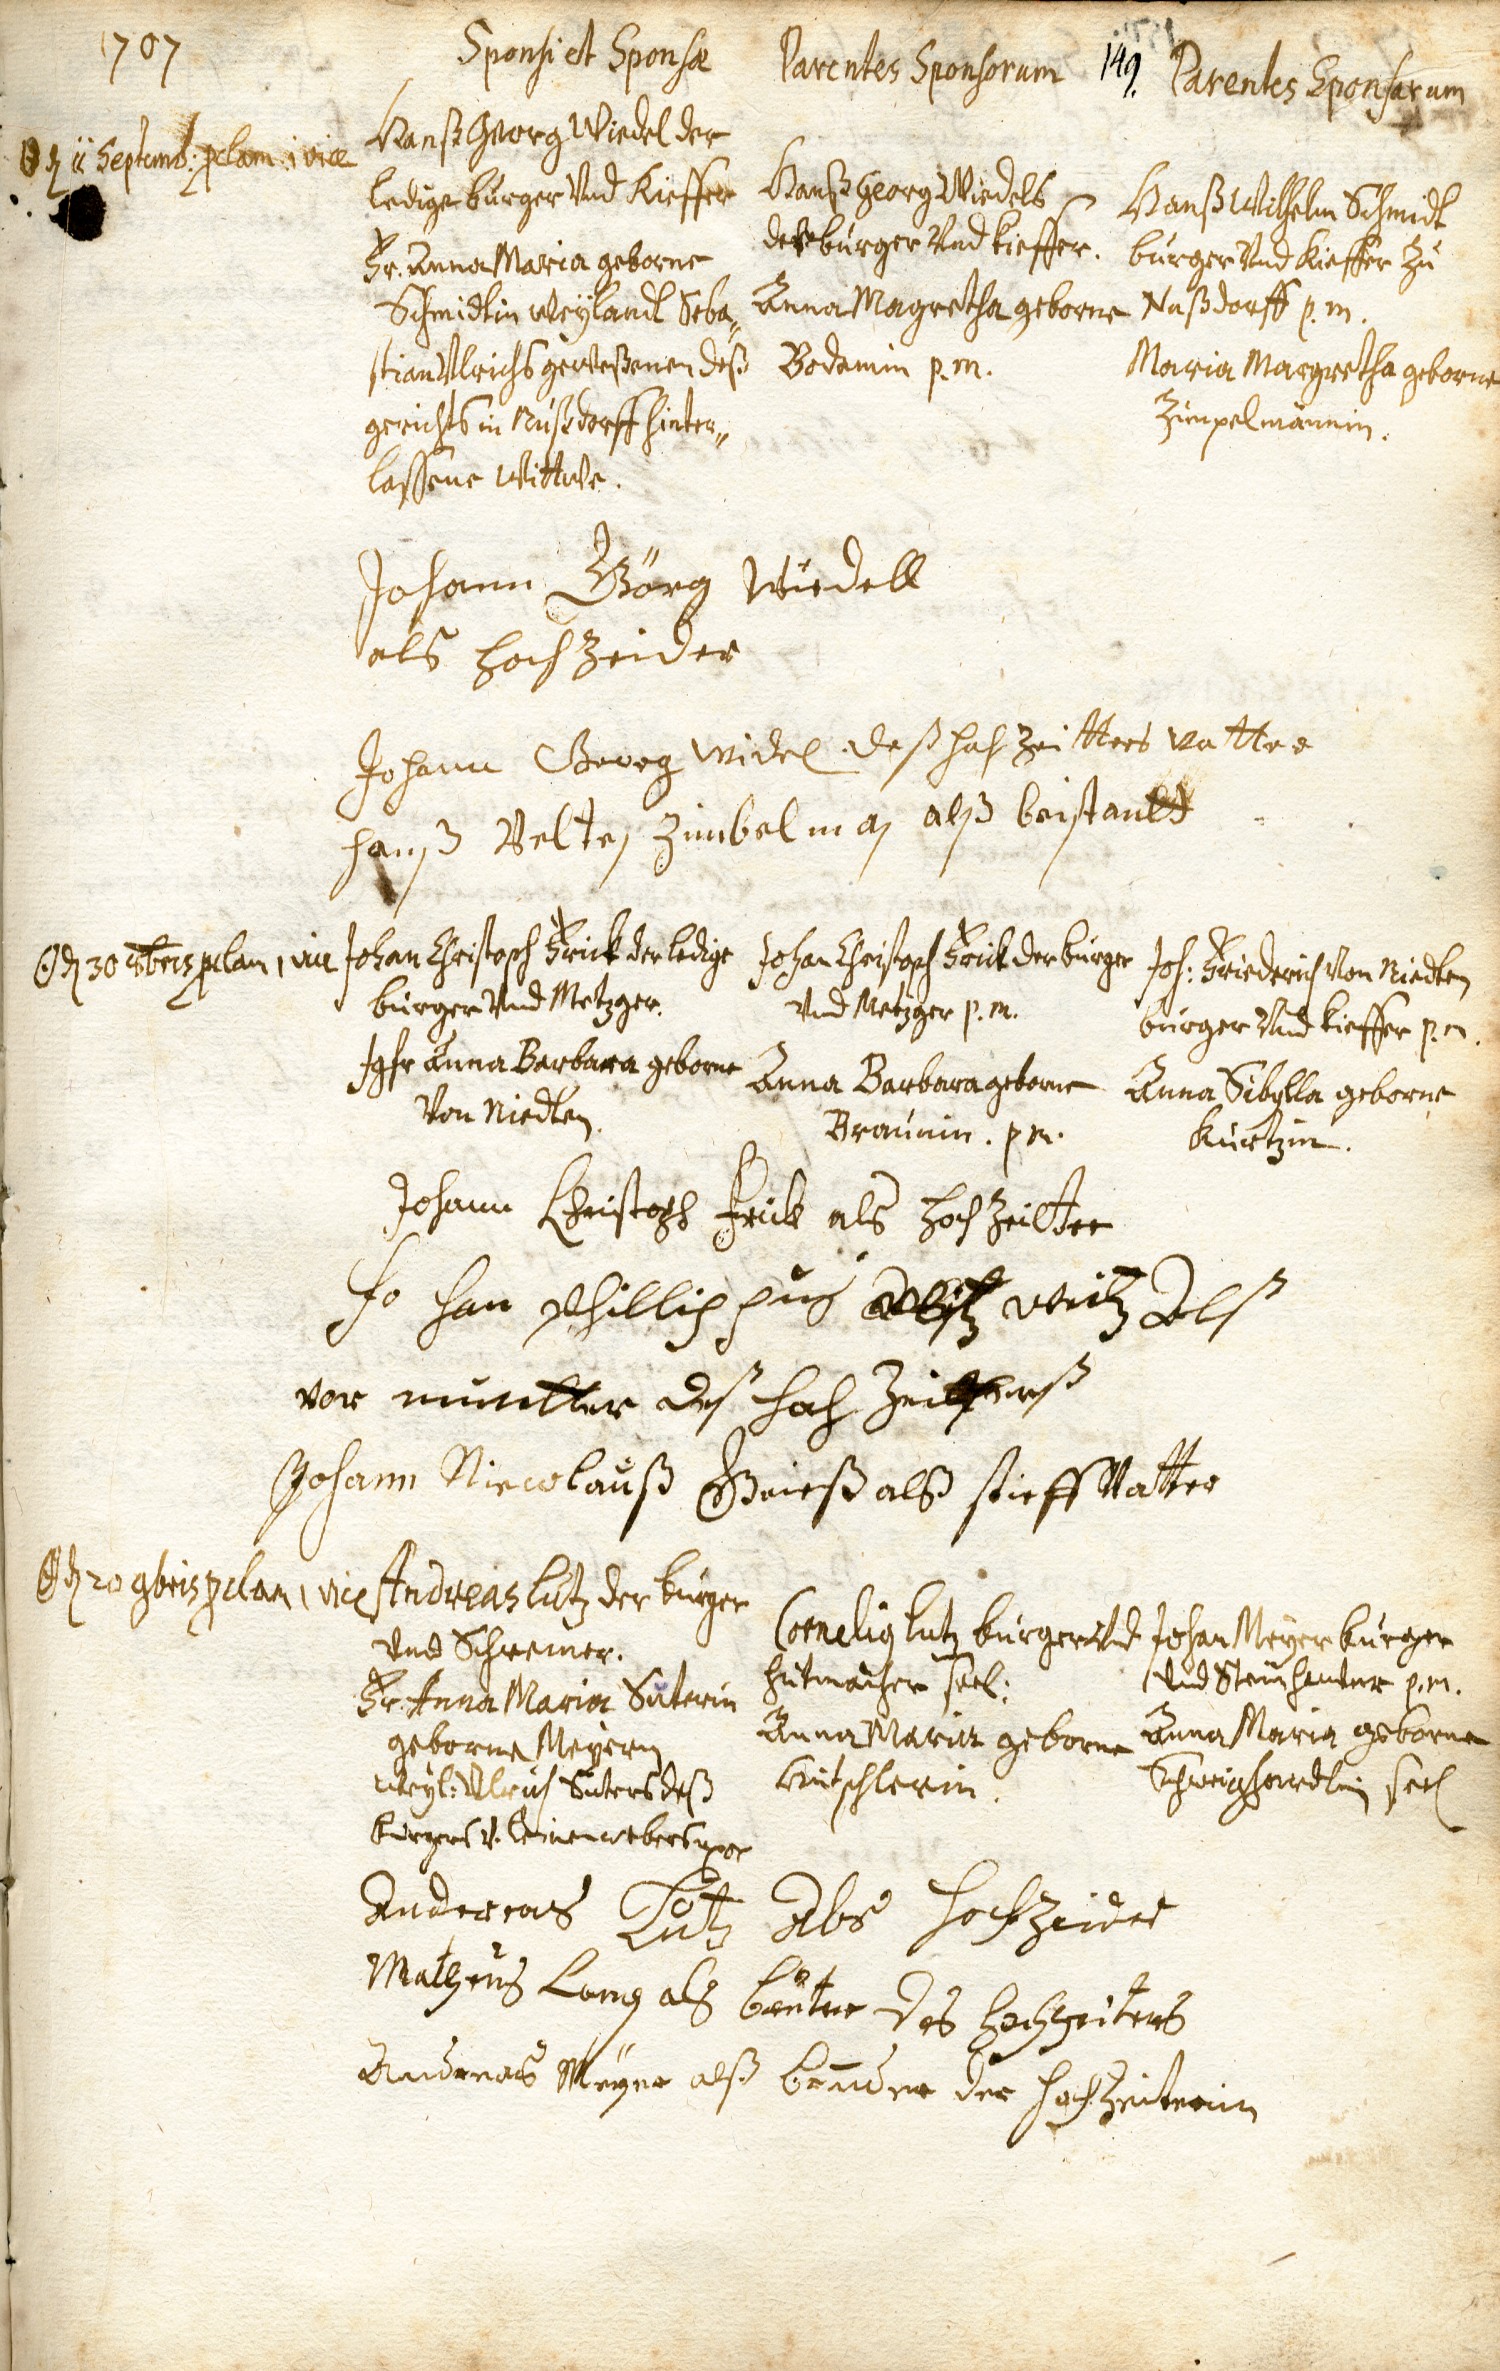 1707
Sponsi et Sponsæ
Parentes Sponsorum
149.
Parentes Sponsarum
11 Septemb: proclam. 1 vice
Hanß Georg Wiedel der
ledige burger Vnd Kieffer
Fr. Anna Maria geborne
Schmidtin Weÿlandt Seba„
stian Vlrichs geweßenen deß
gerichts in Nußdorff hinter„
lassene Wittwe.
Hanß Georg Wiedels
der burger Vnd Kieffer.
Anna Magretha geborne
Bodemin p.m.
Hanß Wilhelm Schmidt
burger Vnd Kieffer zu
Nußdorff p.m.
Maria Margretha geborne
Zimpelmännin.
Johann Görg Wiedell
als hochzeider
Johann Georg Widel deß hochzeitters Vatter
hanß Velten Zimbelman alß beistandt
30 8breis proclam 1 vice
Johan Christoph Frick der ledige
burger Vnd Metzger.
Jgfr Anna Barbara geborne
Von Niedten.
Johan Christoph Frick der burger
Vnd Metzger p.m.
Anna Barbara geborne
Braunin. p m.
Joh: Friederich Von Niedten
burger Vnd Kieffer p.m.
Anna Sibÿlla geborne
Kurtzin.
Johann Christoph Frick als hochzeitter
Jo han Phillippus weitz Als
vor mundter des hoch zeitters
Johann Nicolauß Grieß alß stieff Vatter
20 9breis proclam 1 vice
Andreas Lutz der burger
Vnd Schreiner.
Fr. Anna Maria Suterin
geborne Meyerin
weyl: Vlrich Suters deß
burgers v. Leinenwebers uxor
Cornelius Lutz burger Vnd
hutmacher seel:
Anna Maria geborne
Johan Meyer burger
Vnd Steinhauer p.m.
Anna Maria geborne
seel
Andereas Lutz Als hochzeider
Matheus Lang als bruter des hochzeiters
Andreas Meyer alß bruder der hochzeiterin